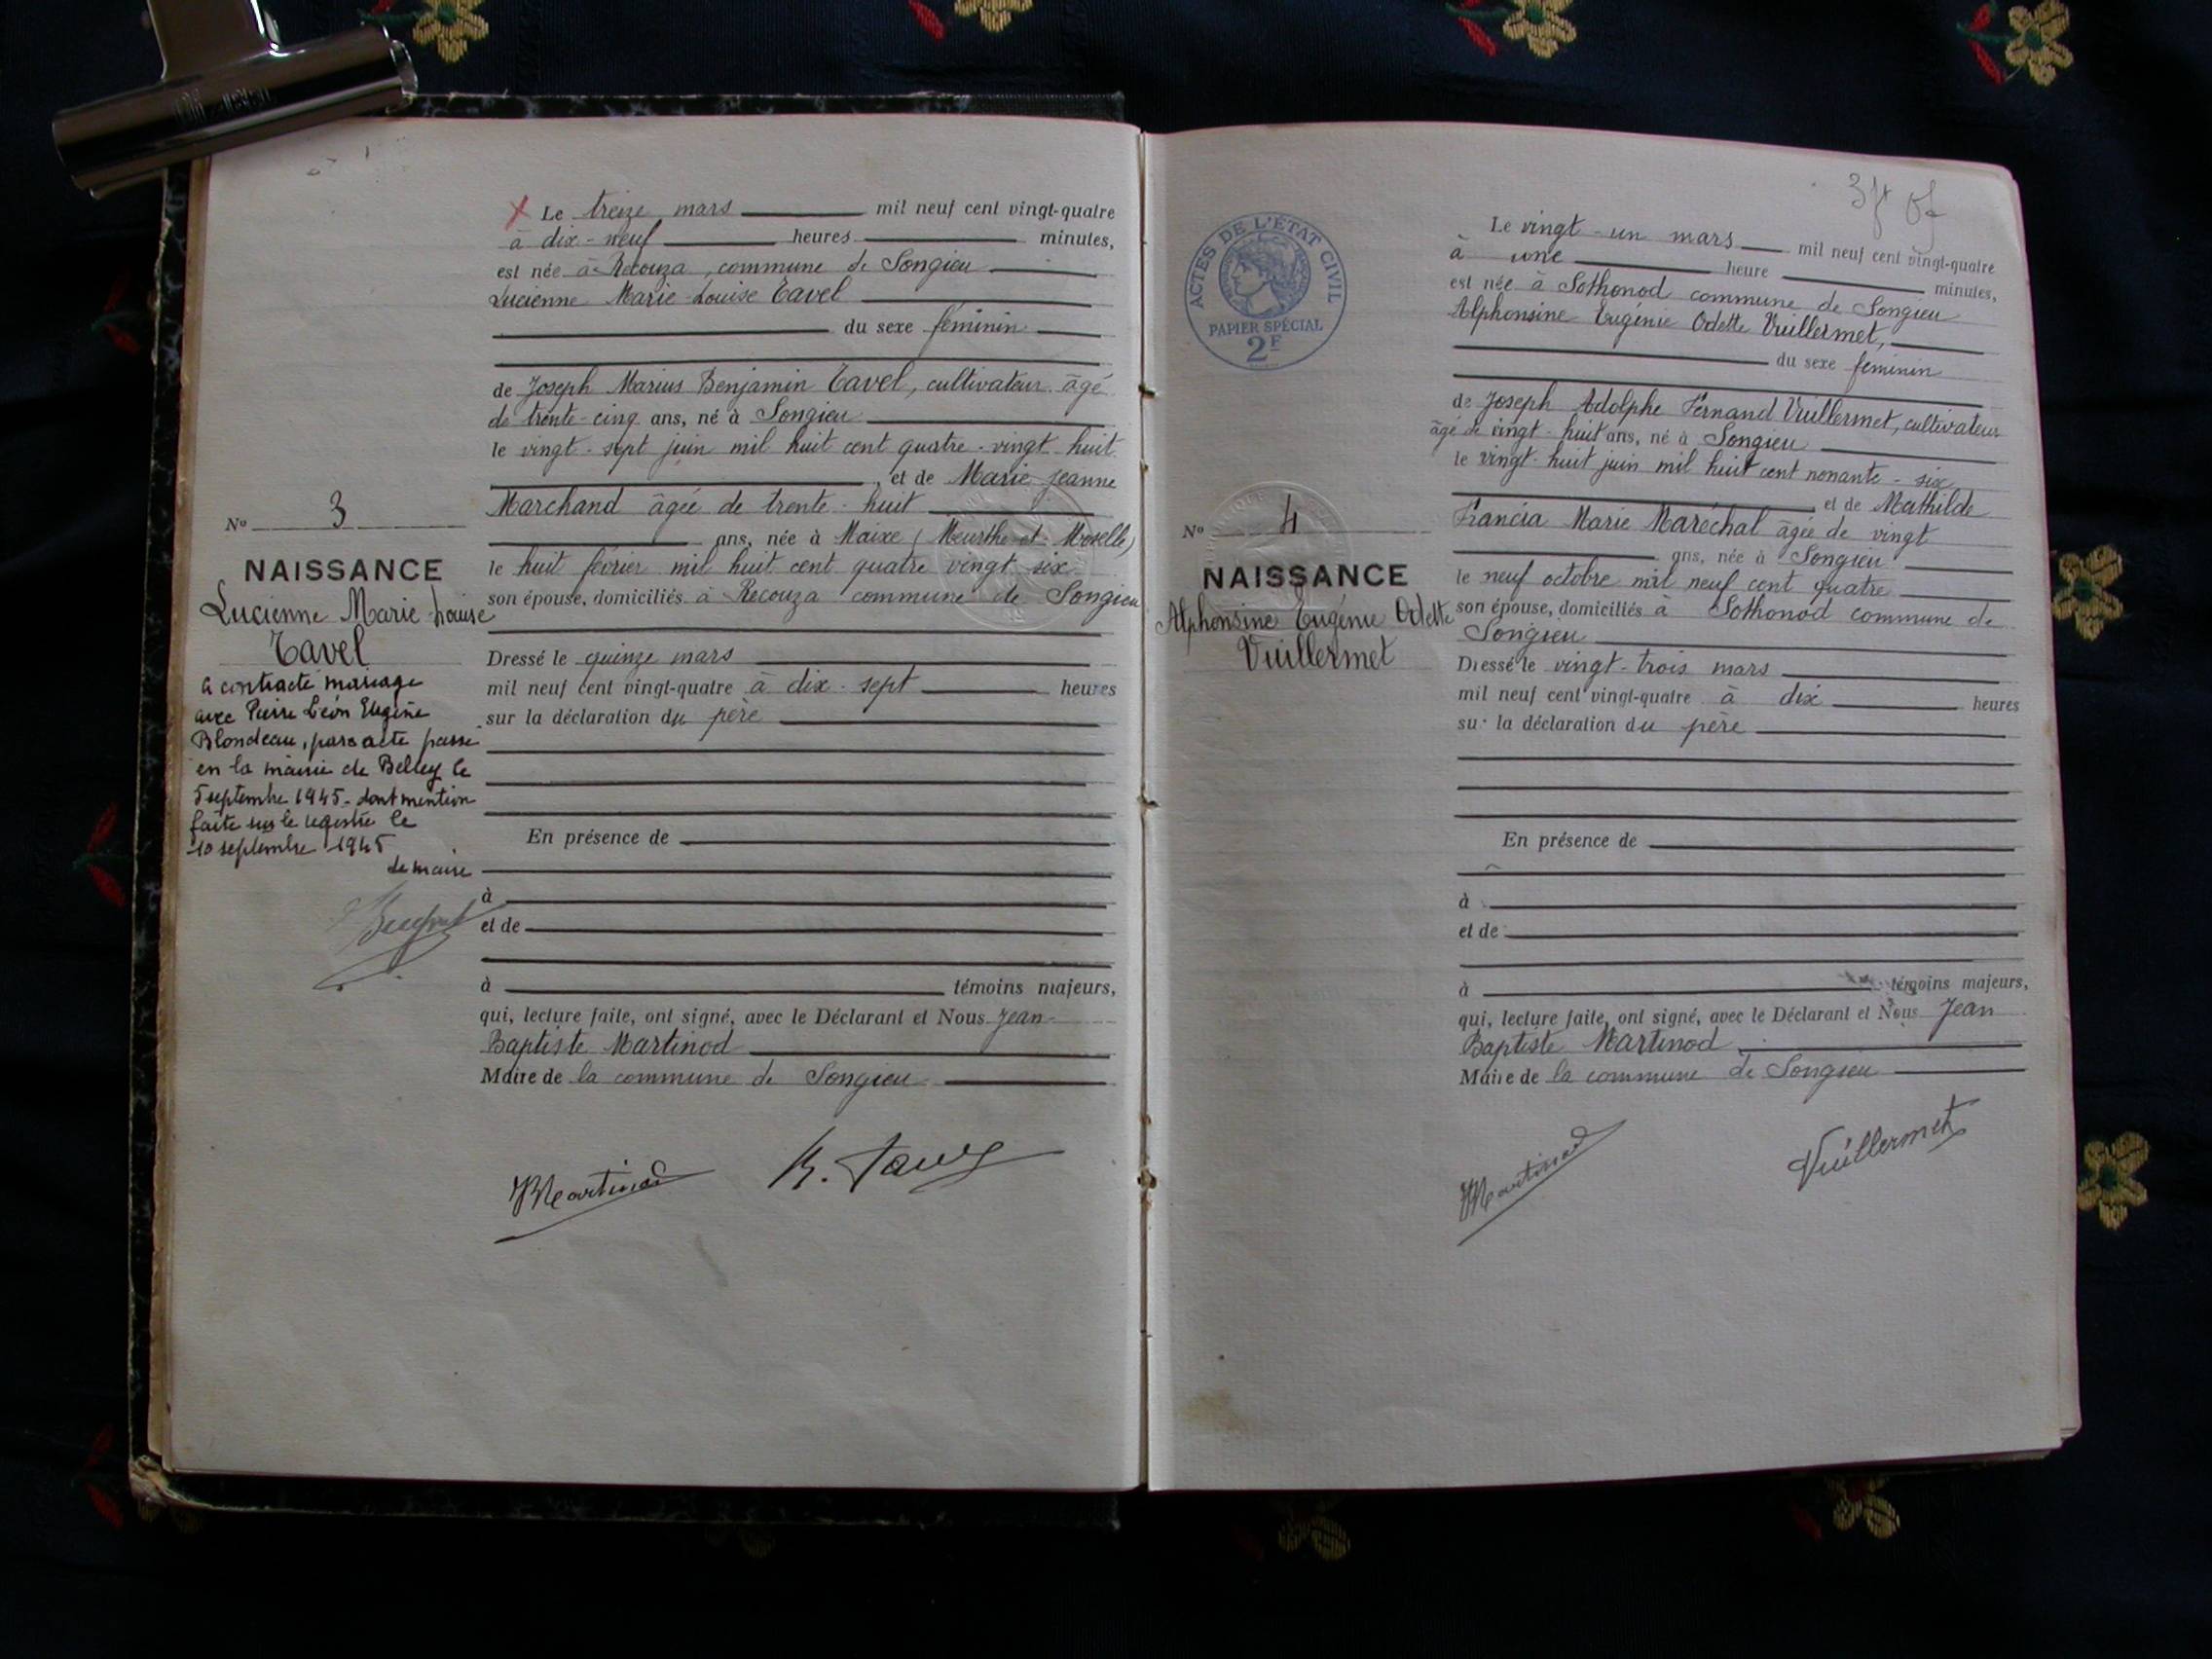 Le treize mars mil neuf cent vingt-quatre
à dix-neuf heures minutes,
est née à Recouza, commune de Songieu
Lucienne Marie Louise Tavel
du sexe féminin
de Joseph Marius Benjamin Tavel, cultivateur âgé
de trente-cinq ans, né à Songieu
le vingt-sept juin mil huit cent quatre-vingt-huit
, et de Marie Jeanne
Marchand âgée de trente-huit
ans, née à Maixe (Meurthe et Moselle)
le huit février mil huit cent quatre vingt six
son épouse, domiciliés à Recouza commune de Songieu
Dressé le quinze mars
mil neuf cent vingt-quatre à dix-sept heures
sur la déclaration du père
En présence de
à
et de
à témoins majeurs,
qui, lecture faite, ont signé, avec le Déclarant et Nous Jean
Baptiste Martinod
Maire de la commune de Songieu
Martinod
Nº 3
NAISSANCE
Lucienne Marie Louise
Tavel
a contracté mariage
avec Pierre Léon Eugène
Blondeau, par acte passé
en la mairie de Belley le
5 septembre 1945 - dont mention
faite sur le registre le
10 septembre 1945
Le maire
ACTES DE L'ÉTAT CIVIL
PAPIER SPÉCIAL
2F
Nº 4
NAISSANCE
Alphonsine Eugénie Odette
Vuillermet
Le vingt-un mars mil neuf cent vingt-quatre
à une heure minutes,
est née à Sothonod commune de Songieu
Alphonsine Eugénie Odette Vuillermet,
du sexe féminin
de Joseph Adolphe Fernand Vuillermet, cultivateur
âgé de vingt-huit ans, né à Songieu
le vingt-huit juin mil huit cent nonante-six
et de Mathilde
Francia Marie Maréchal âgée de vingt
ans, née à Songieu
le neuf octobre mil neuf cent quatre
son épouse, domiciliés à Sothonod commune de
Songieu
Dressé le vingt-trois mars
mil neuf cent vingt-quatre à dix heures
sur la déclaration du père
En présence de
à
et de
à témoins majeurs,
qui, lecture faite, ont signé, avec le Déclarant et Nous Jean
Baptiste Martinod
Maire de la commune de Songieu
Martinod
Vuillermet